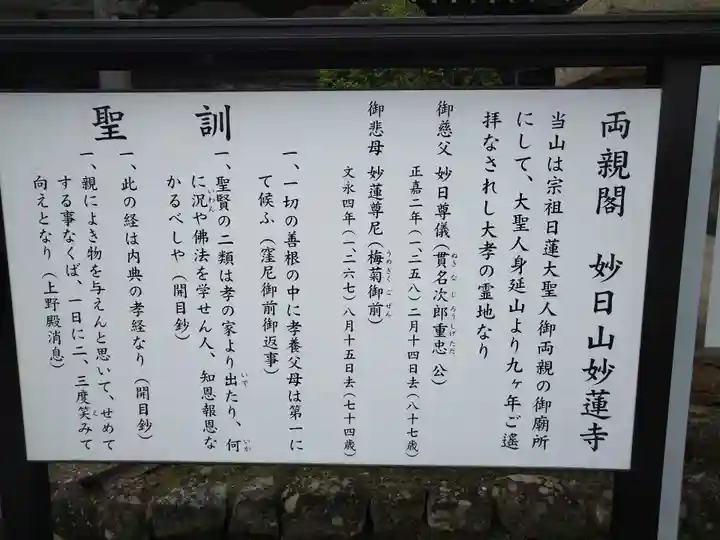 両親閣 妙日山妙蓮寺
当山は宗祖日蓮大聖人御両親の御廟所
にして、大聖人身延山より九ヶ年ご遙
拝なされし大孝の霊地なり
御慈父 妙日尊儀(貫名次郎重忠公)
ぬきなじろうしげただ
正嘉二年(一、二五八)二月十四日去(八十七歳)
御悲母 妙蓮尊尼(梅菊御前)
うめぎくごぜん
文永四年(一、二六七)八月十五日去(七十四歳)
聖訓
一、一切の善根の中に孝養父母は第一に
て候ふ(窪尼御前御返事)
一、聖賢の二類は孝の家より出たり、何
いで いか
に況や佛法を学せん人、知恩報恩な
いわん
かるべしや(開目鈔)
一、此の経は内典の孝経なり(開目鈔)
一、親によき物を与えんと思いて、せめて
する事なくば、一日に二、三度笑みて
と
向えとなり(上野殿消息)